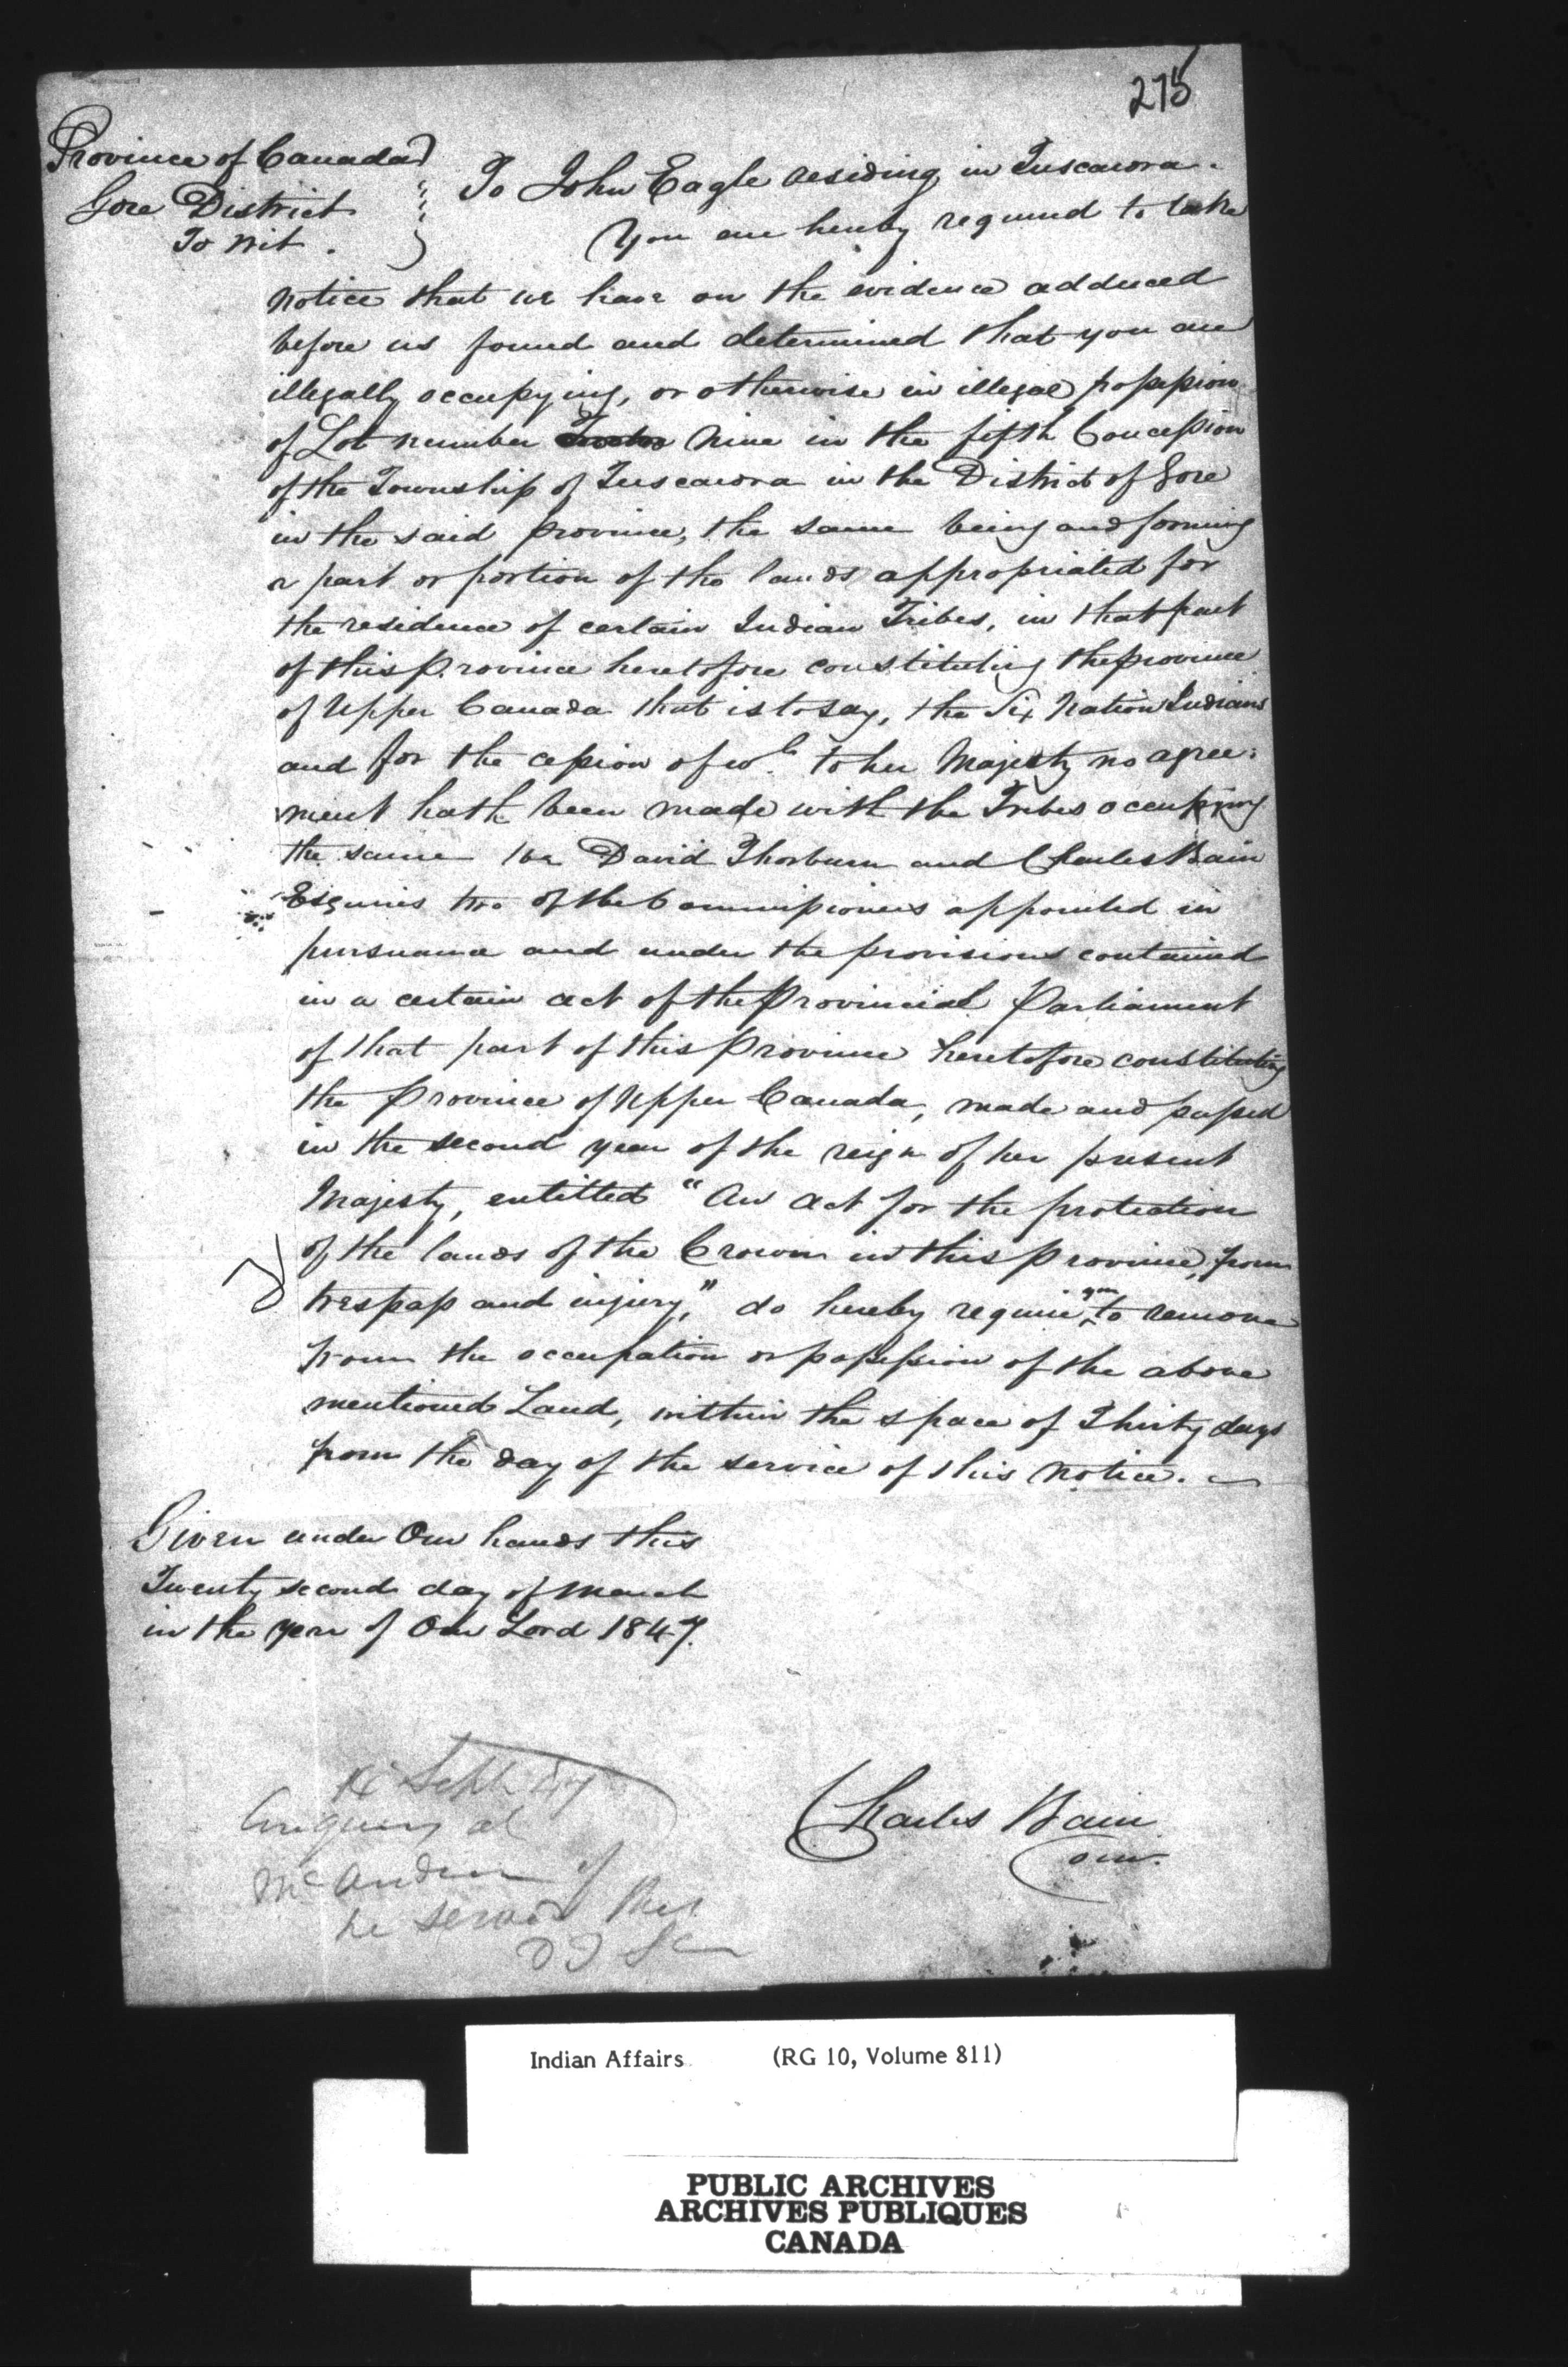 275
Province of Canada
Gore District
To Wit.
To John Eagle residing in Tuscarora.
You are hereby required to take
notice that we have on the evidence adduced
before us found and determined that you are
illegally occupying, or otherwise in illegal possession
of Lot number Nine in the fifth Concession
of the Township of Tuscarora in the District of Gore
in the said province, the same being and forming
a part or portion of the lands appropriated for
the residence of certain Indian Tribes, in that part
of this Province heretofore constituting the province
of Upper Canada that is to say, the Six Nation Indians
and for the cession of wh. to her Majesty no agree:
ment hath been made with the Tribes occupying
the same We David Thorburn and Charles Bain
Esquires two of the Commissioners appointed in
pursuance and under the provisions contained
in a certain act of the Provincial Parliament
of that part of this Province heretofore constituting
the Province of Upper Canada, made and passed
in the second year of the reign of her present
Majesty, entitled "An Act for the protection
of the lands of the Crown in this province, from
trespass and injury," do hereby require you to remove
from the occupation or possession of the above
mentioned Land, within the space of Thirty days
from the day of the service of this notice.
Given under Our hands this
Twenty second day of March
in the year of Our Lord 1847.
Charles Bain
Com.
Sept 47
Enquiry at
McAndrew if
he served this
Indian Affairs (RG 10, Volume 811)
PUBLIC ARCHIVES
ARCHIVES PUBLIQUES
CANADA